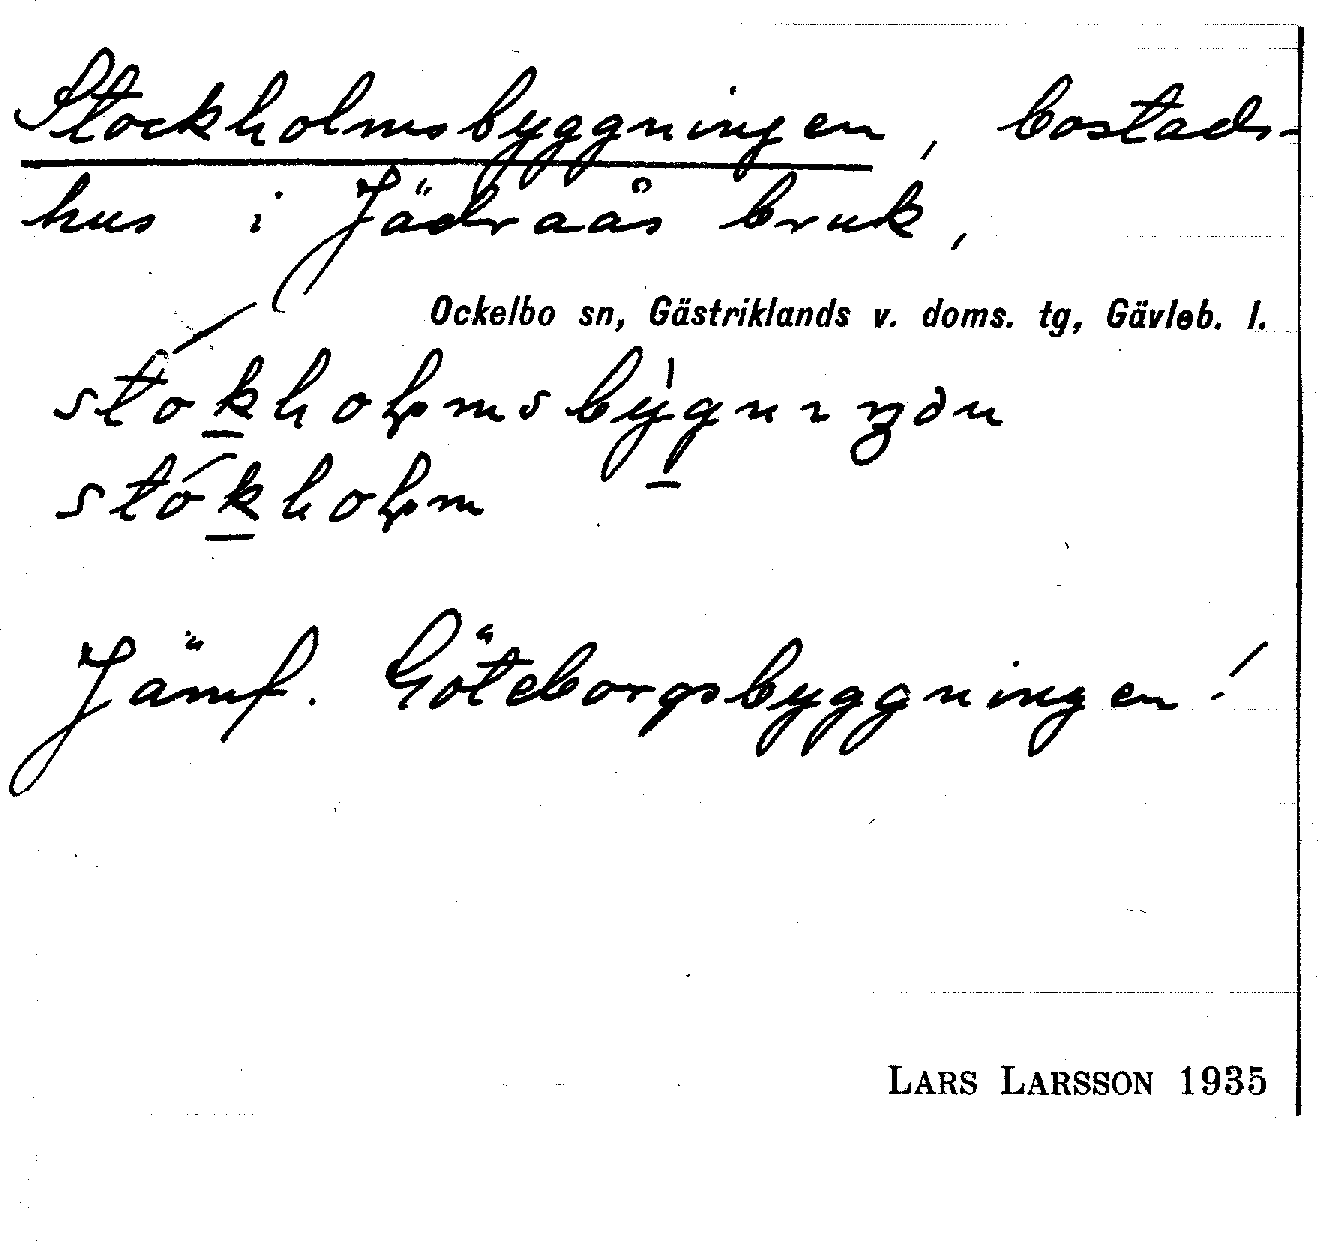 Stockholmsbyggningen, bostads-
hus i Jädraås bruk,
Ockelbo sn, Gästriklands v. doms. tg, Gävleb. l.
Jämf. Göteborgsbyggningen!
LARS LARSSON 1935